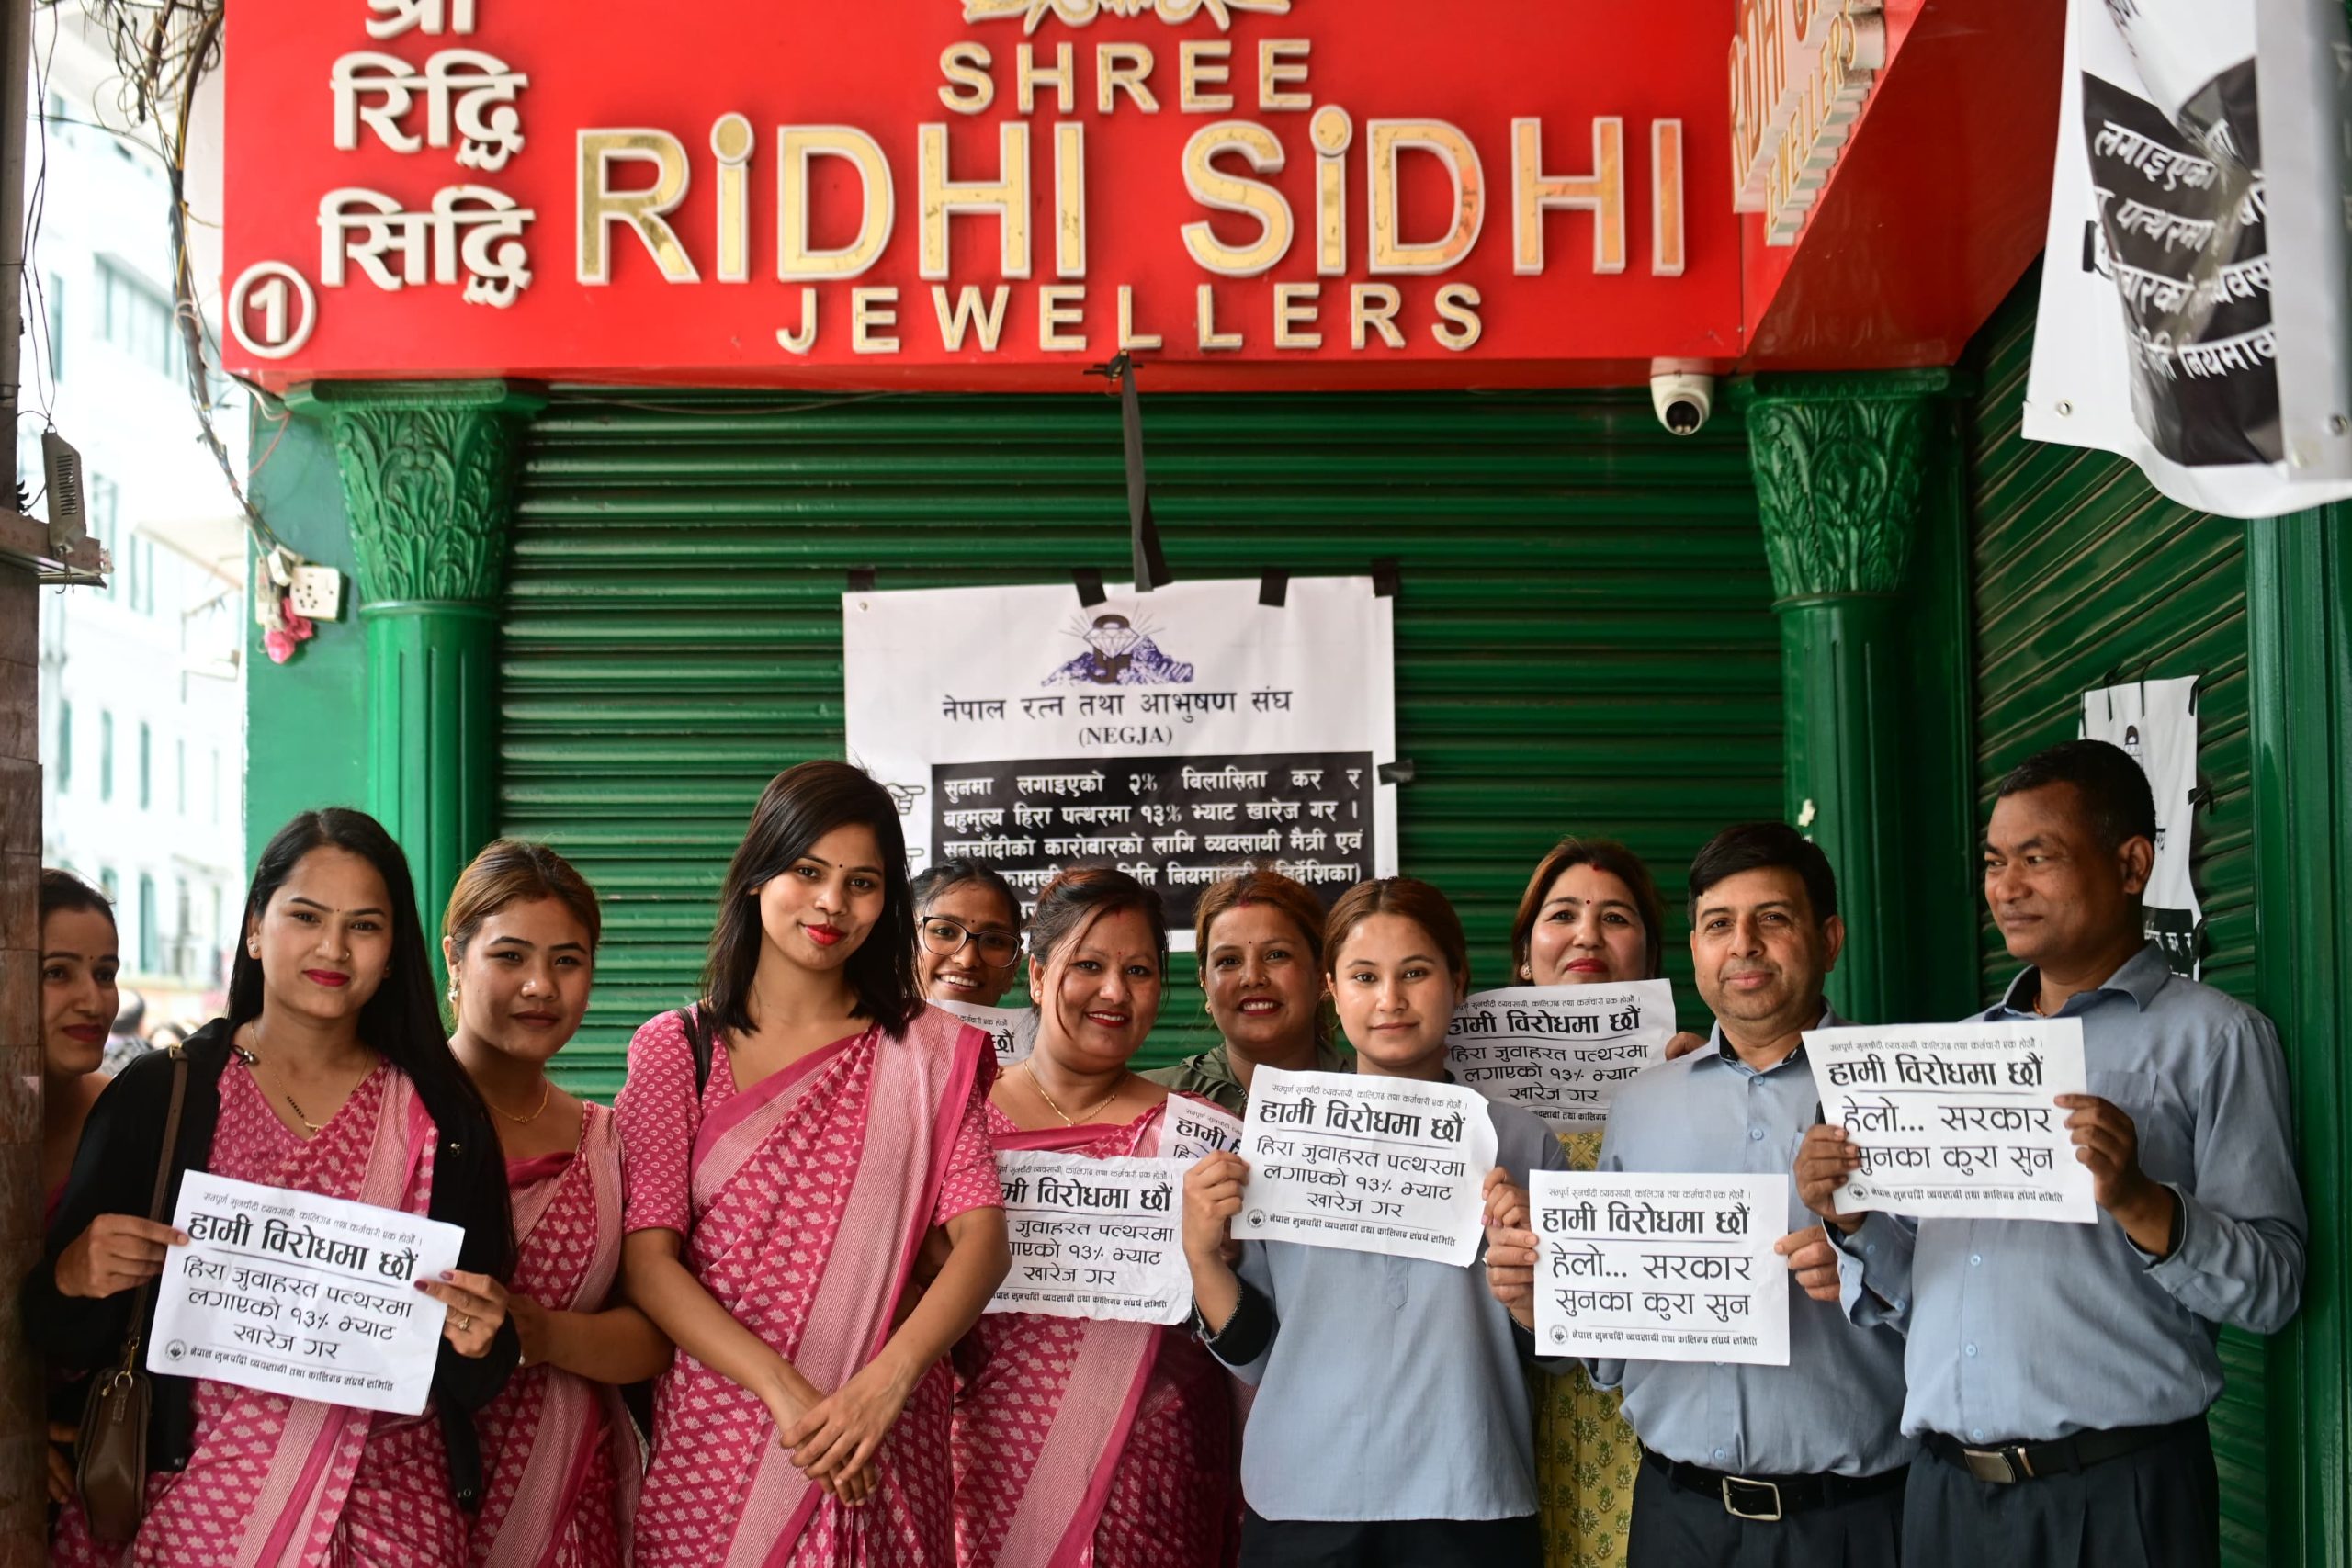 श्री
रिद्धि
सिद्धि
1
SHREE
RiDHI SiDHI
JEWELLERS
RiDHI
JEWELLERS
लगाइएको
पत्थरमा
नेपाल रत्न तथा आभुषण संघ
(NEGJA)
सुनमा लगाइएको २% बिलासिता कर र
बहुमूल्य हिरा पत्थरमा १३% भ्याट खारेज गर ।
सुनचाँदीको कारोबारको लागि व्यवसायी मैत्री एवं
नियमावली (निर्देशिका)
सम्पूर्ण सुनचाँदी व्यवसायी, कालिगढ तथा कर्मचारी एक होऔं ।
हामी विरोधमा छौं
हिरा जुवाहरत पत्थरमा
लगाएको १३% भ्याट
खारेज गर
नेपाल सुनचाँदी व्यवसायी तथा कालिगढ संघर्ष समिति
छौं
सुनचाँदी व्यवसायी, कालिगढ तथा कर्मचारी एक होऔं ।
विरोधमा छौं
जुवाहरत पत्थरमा
१३% भ्याट
खारेज गर
सुनचाँदी व्यवसायी तथा कालिगढ संघर्ष समिति
हामी
सम्पूर्ण सुनचाँदी व्यवसायी, कालिगढ तथा कर्मचारी एक होऔं ।
हामी विरोधमा छौं
हिरा जुवाहरत पत्थरमा
लगाएको १३% भ्याट
खारेज गर
नेपाल सुनचाँदी व्यवसायी तथा कालिगढ संघर्ष समिति
सुनचाँदी व्यवसायी, कालिगढ तथा कर्मचारी एक होऔं ।
हामी विरोधमा छौं
हिरा जुवाहरत पत्थरमा
लगाएको १३% भ्याट
खारेज गर
तथा कालिगढ
सम्पूर्ण सुनचाँदी व्यवसायी, कालिगढ तथा कर्मचारी एक होऔं ।
हामी विरोधमा छौं
हेलो... सरकार
सुनका कुरा सुन
नेपाल सुनचाँदी व्यवसायी तथा कालिगढ संघर्ष समिति
सम्पूर्ण सुनचाँदी व्यवसायी, कालिगढ तथा कर्मचारी एक होऔं ।
हामी विरोधमा छौं
हेलो... सरकार
सुनका कुरा सुन
नेपाल सुनचाँदी व्यवसायी तथा कालिगढ संघर्ष समिति